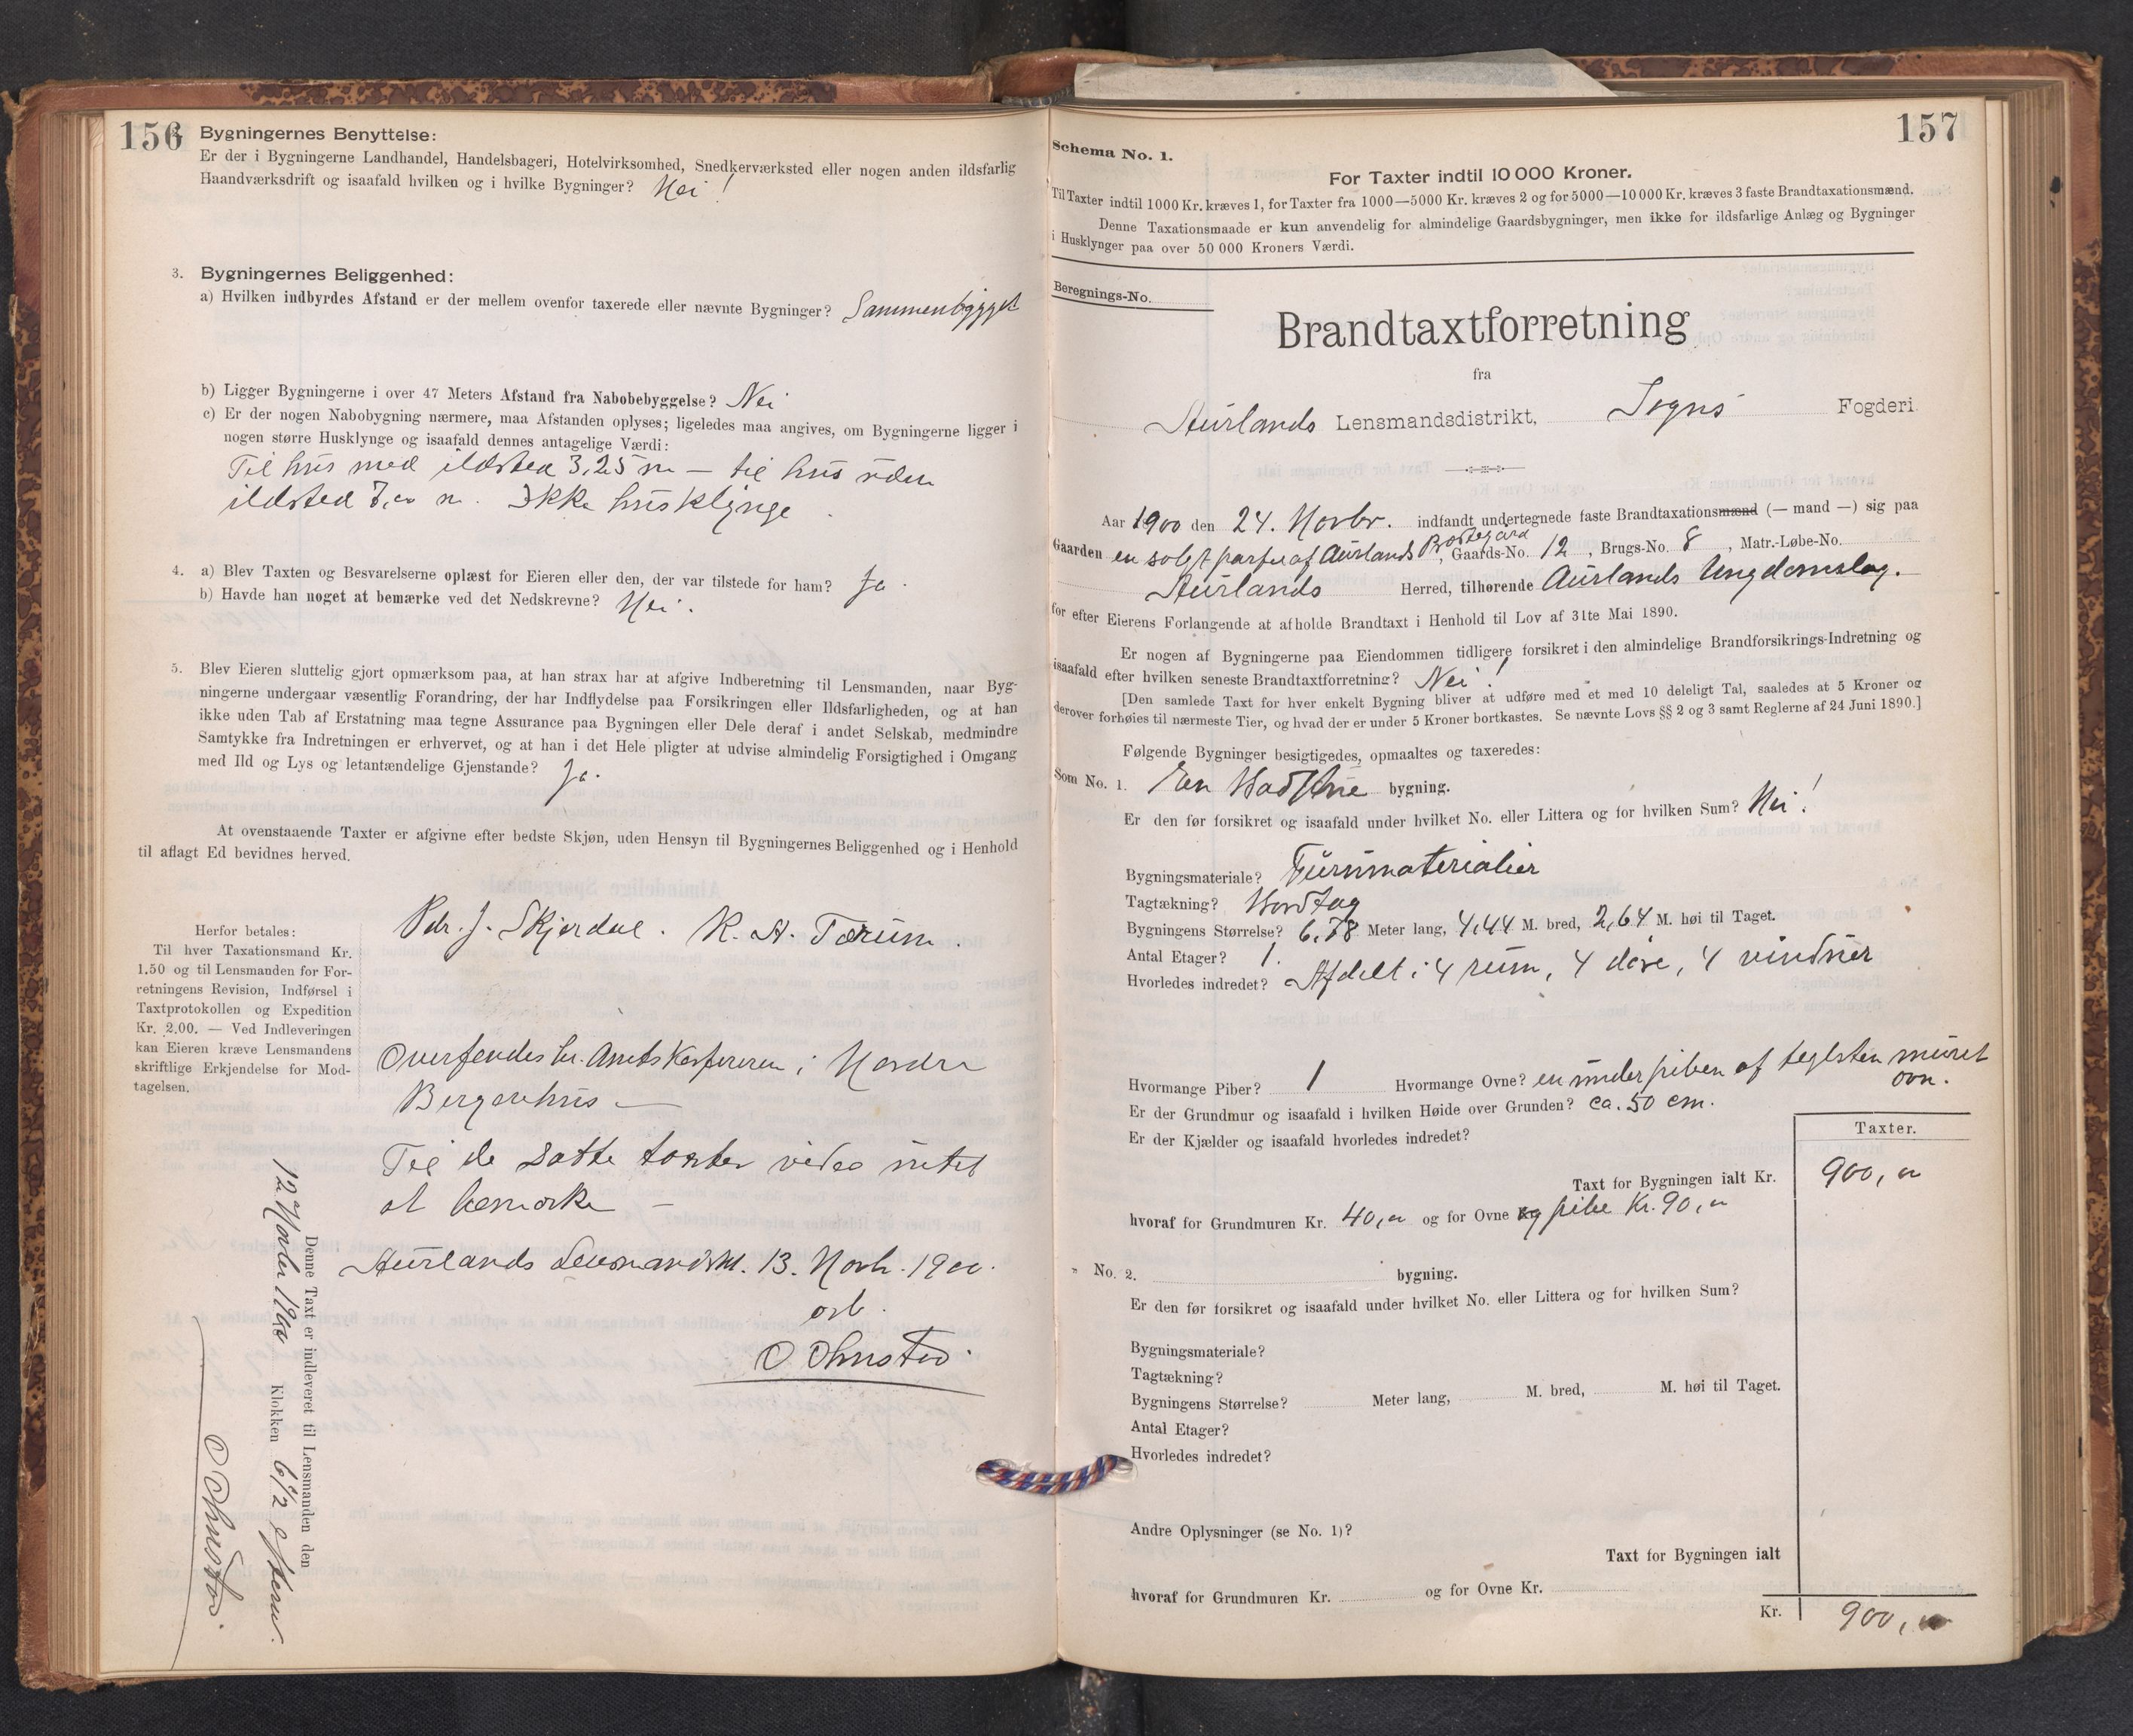 156
Bygningernes Benyttelse:
Er der i Bygningerne Landhandel, Handelsbageri, Hotelvirksomhed, Snedkerværksted eller nogen anden ildsfarlig
Haandværksdrift og isaafald hvilken og i hvilke Bygninger? Nei!
3. Bygningernes Beliggenhed:
a) Hvilken indbyrdes Afstand er der mellem ovenfor taxerede eller nævnte Bygninger? Sammenbygget
b) Ligger Bygningerne i over 47 Meters Afstand fra Nabobebyggelse? Nei
c) Er der nogen Nabobygning nærmere, maa Afstanden oplyses; ligeledes maa angives, om Bygningerne ligger i
nogen større Husklynge og isaafald dennes antagelige Værdi:
Til hus med ildsted 3,25 m — til hus uden
ildsted m. Ikke husklynge
4. a) Blev Taxten og Besvarelserne oplæst for Eieren eller den, der var tilstede for ham? Ja
b) Havde han noget at bemærke ved det Nedskrevne? Nei.
5. Blev Eieren sluttelig gjort opmærksom paa, at han strax har at afgive Indberetning til Lensmanden, naar Byg-
ningerne undergaar væsentlig Forandring, der har Indflydelse paa Forsikringen eller Ildsfarligheden, og at han
ikke uden Tab af Erstatning maa tegne Assurance paa Bygningen eller Dele deraf i andet Selskab, medmindre
Samtykke fra Indretningen er erhvervet, og at han i det Hele pligter at udvise almindelig Forsigtighed i Omgang
med Ild og Lys og letantændelige Gjenstande? Ja.
At ovenstaaende Taxter er afgivne efter bedste Skjøn, uden Hensyn til Bygningernes Beliggenhed og i Henhold
til aflagt Ed bevidnes herved.
Pdr. J. Skjerdal. K. A. Tærum.
Herfor betales:
Til hver Taxationsmand Kr.
1.50 og til Lensmanden for For-
retningens Revision, Indførsel i
Taxtprotokollen og Expedition
Kr. 2.00. — Ved Indleveringen
kan Eieren kræve Lensmandens
skriftlige Erkjendelse for Mod-
tagelsen.
Oversendes hr. Amtskassereren i Nordre
Bergenhus —
Til de satte taxter vides intet
at bemærke —
Aurlands Lensmandsk. 13. Novb. 1900.
O Ohnstad.
Denne Taxt er indleveret til Lensmanden den
12 Novbr 1900 Klokken 6 1/2 efterm.
O Ohnstad.
157
Schema No. 1.
For Taxter indtil 10 000 Kroner.
Til Taxter indtil 1000 Kr. kræves 1, for Taxter fra 1000—5000 Kr. kræves 2 og for 5000—10 000 Kr. kræves 3 faste Brandtaxationsmænd.
Denne Taxationsmaade er kun anvendelig for almindelige Gaardsbygninger, men ikke for ildsfarlige Anlæg og Bygninger
i Husklynger paa over 50 000 Kroners Værdi.
Beregnings-No.
Brandtaxtforretning
fra
Aurlands Lensmandsdistrikt, Sogns Fogderi
Aar 1900 den 24. Novbr. indfandt undertegnede faste Brandtaxationsmænd (— mand —) sig paa
Gaarden en solgt parsel af Aurlands Prestegard, Gaards-No. 12, Brugs-No. 8, Matr.-Løbe-No.
Aurlands Herred, tilhørende Aurlands Ungdomslag.
for efter Eierens Forlangende at afholde Brandtaxt i Henhold til Lov af 31te Mai 1890.
Er nogen af Bygningerne paa Eiendommen tidligere forsikret i den almindelige Brandforsikrings-Indretning og
isaafald efter hvilken seneste Brandtaxtforretning? Nei!
[Den samlede Taxt for hver enkelt Bygning bliver at udføre med et med 10 deleligt Tal, saaledes at 5 Kroner og
derover forhøies til nærmeste Tier, og hvad der er under 5 Kroner bortkastes. Se nævnte Lovs §§ 2 og 3 samt Reglerne af 24 Juni 1890.]
Følgende Bygninger besigtigedes, opmaaltes og taxeredes:
Som No. 1. En bygning.
Er den før forsikret og isaafald under hvilket No. eller Littera og for hvilken Sum? Nei!
Bygningsmateriale? Furumaterialier
Tagtækning?
Bygningens Størrelse? 6,78 Meter lang, 4,44 M. bred, 2,64 M. høi til Taget.
Antal Etager? 1.
Hvorledes indredet? Afdelt i 4 rum, 4 døre, 4 vinduer
Hvormange Piber? 1 Hvormange Ovne? en under piben af teglsten muret
ovn.
Er der Grundmur og isaafald i hvilken Høide over Grunden? ca. 50 cm.
Er der Kjælder og isaafald hvorledes indredet?
Taxter.
Taxt for Bygningen ialt Kr. 900,00
hvoraf for Grundmuren Kr. 40,00 og for Ovne og pibe Kr. 90,00
" No. 2. bygning.
Er den før forsikret og isaafald under hvilket No. eller Littera og for hvilken Sum?
Bygningsmateriale?
Tagtækning?
Bygningens Størrelse? Meter lang, M. bred, M. høi til Taget.
Antal Etager?
Hvorledes indredet?
Andre Oplysninger (se No. 1)?
Taxt for Bygningen ialt
hvoraf for Grundmuren Kr. og for Ovne Kr.
Kr. 900,00